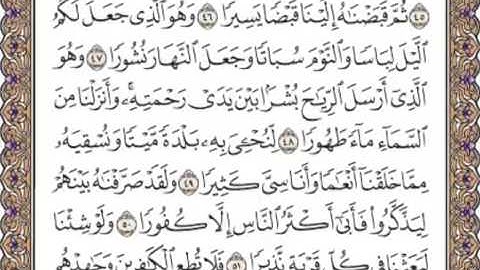 ٤٥ ثُمَّ قَبَضْنَٰهُ إِلَيْنَا قَبْضًا يَسِيرًا ٤٦ وَهُوَ ٱلَّذِى جَعَلَ لَكُمُ
ٱلَّيْلَ لِبَاسًا وَٱلنَّوْمَ سُبَاتًا وَجَعَلَ ٱلنَّهَارَ نُشُورًا ٤٧ وَهُوَ
ٱلَّذِىٓ أَرْسَلَ ٱلرِّيَٰحَ بُشْرًۢا بَيْنَ يَدَىْ رَحْمَتِهِۦ ۚ وَأَنزَلْنَا مِنَ
ٱلسَّمَآءِ مَآءً طَهُورًا ٤٨ لِّنُحْـِۧىَ بِهِۦ بَلْدَةً مَّيْتًا وَنُسْقِيَهُۥ
مِمَّا خَلَقْنَآ أَنْعَٰمًا وَأَنَاسِىَّ كَثِيرًا ٤٩ وَلَقَدْ صَرَّفْنَٰهُ بَيْنَهُمْ
لِيَذَّكَّرُوا۟ فَأَبَىٰٓ أَكْثَرُ ٱلنَّاسِ إِلَّا كُفُورًا ٥٠ وَلَوْ شِئْنَا
لَبَعَثْنَا فِى كُلِّ قَرْيَةٍ نَّذِيرًا ٥١ فَلَا تُطِعِ ٱلْكَٰفِرِينَ وَجَٰهِدْهُم